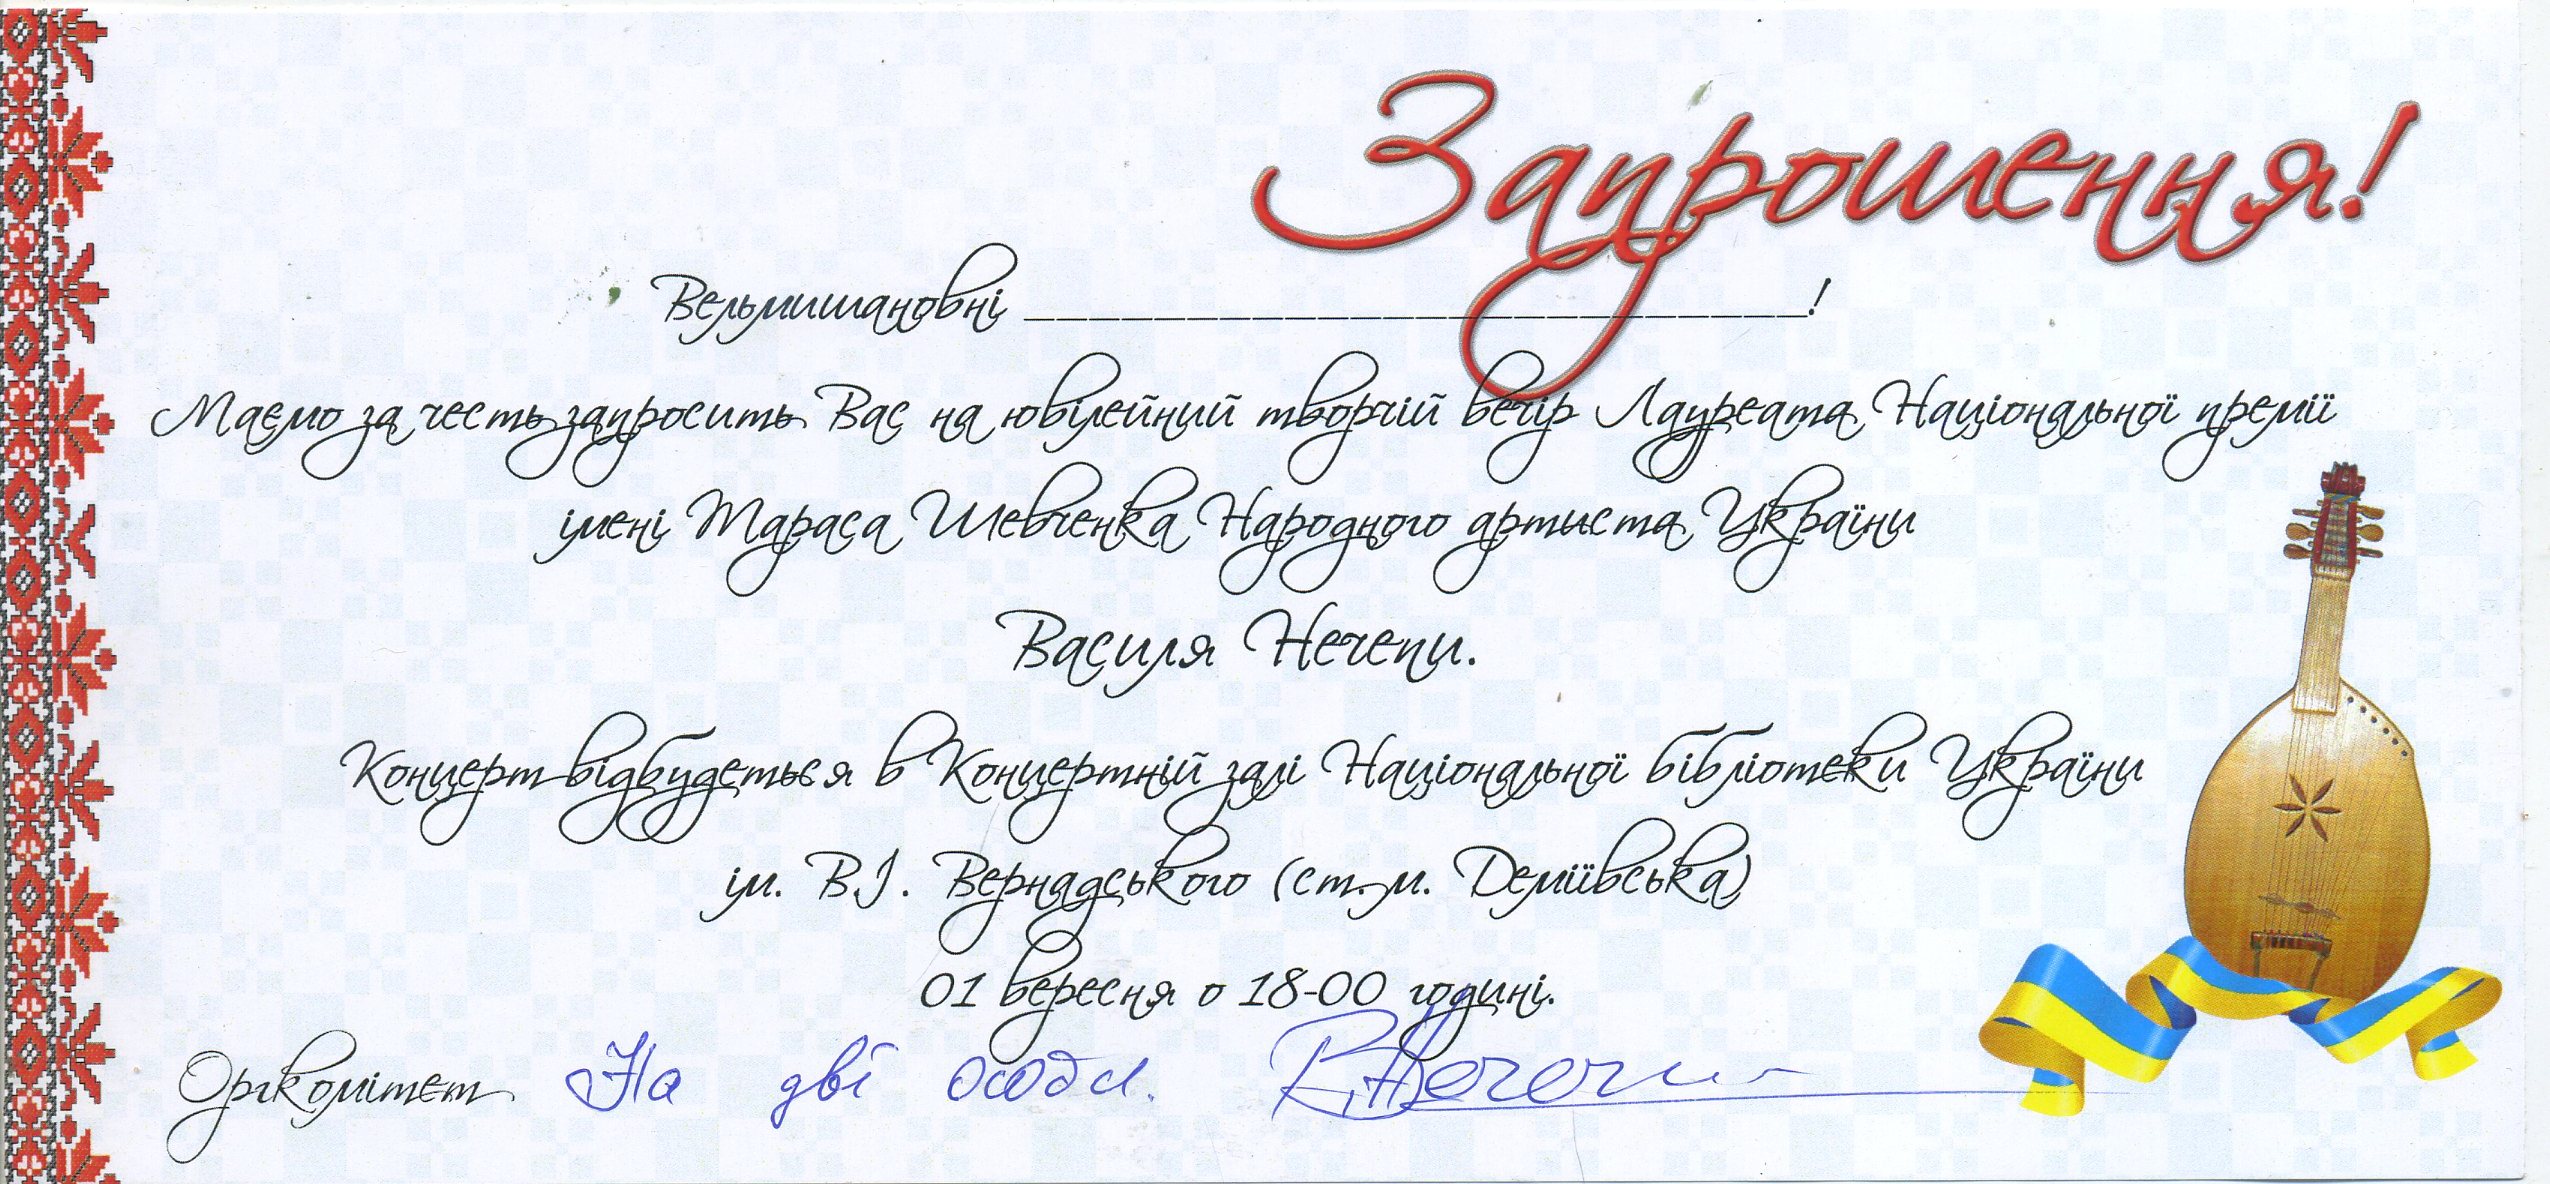 Запрошення!
Вельмишановні ________________________!
Маємо за честь запросить Вас на ювілейний творчій вечір Лауреата Національної премії
імені Тараса Шевченка Народного артиста України
Василя Нечепи.
Концерт відбудеться в Концертній залі Національної бібліотеки України
ім. В.І. Вернадського (ст. м. Деміївська)
01 вересня о 18-00 годині.
Оргкомітет На дві особи.